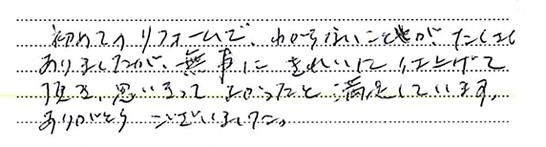 初めてのリフォームで、わからないことがたくさん
ありましたが、無事にきれいに仕上げて
頂き、思いきってよかったと満足しています。
ありがとうございました。